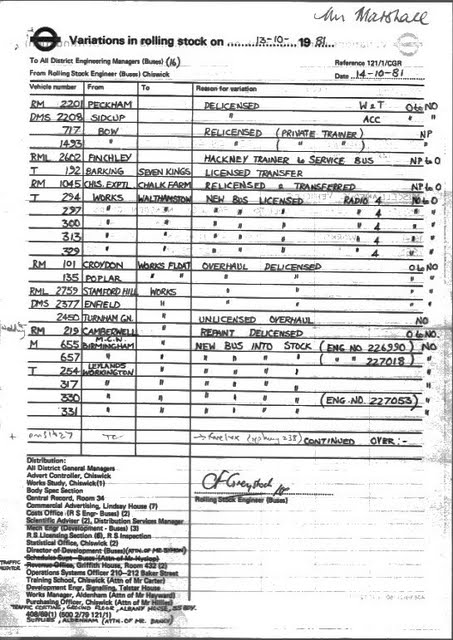 Mr Marshall
Variations in rolling stock on 13-10- 1981
To All District Engineering Managers (Buses) (16)
Reference 121/1/CGR
From Rolling Stock Engineer (Buses) Chiswick
Date 14-10-81
Vehicle number From To Reason for variation
RM 2201 PECKHAM DELICENSED W&T O to NO
DMS 2208 SIDCUP " ACC "
717 BOW RELICENSED (PRIVATE TRAINER) NP
1493 " " " "
RML 2602 FINCHLEY HACKNEY TRAINER to SERVICE BUS NP to O
T 192 BARKING SEVEN KINGS LICENSED TRANSFER
RM 1045 CHIS. EXPTL CHALK FARM RELICENSED & TRANSFERRED NP to O
T 294 WORKS WALTHAMSTOW NEW BUS LICENSED RADIO 4 NO to O
297 " " " " " " 4 "
300 " " " " " " 4 "
313 " " " " " " 4 "
329 " " " " " " 4 "
RM 101 CROYDON WORKS FLOAT OVERHAUL DELICENSED O to NO
135 POPLAR " " " "
RML 2759 STAMFORD HILL WORKS " " "
DMS 2377 ENFIELD " " " "
2450 TURNHAM GN. " UNLICENSED OVERHAUL NO
RM 219 CAMBERWELL " REPAINT DELICENSED O to NO.
M 655 M.C.W. BIRMINGHAM " NEW BUS INTO STOCK (ENG NO 226990) NO
657 " " " " " " ( " " 227018) "
T 254 LEYLANDS WORKINGTON " " " " " "
317 " " " " " " "
330 " " " " " " (ENG. NO. 227053) "
331 " " " " " " "
CONTINUED OVER:-
Distribution:
All District General Managers
Advert Controller, Chiswick
Works Study, Chiswick (1)
Body Spec Section
Central Record, Room 34
Commercial Advertising, Lindsay House (7)
Costs Office (R S Engr- Buses) (2)
Scientific Adviser (2), Distribution Services Manager
Mech Engr (Development - Buses) (3)
R S Licensing Section (6), R S Inspection
Statistical Office, Chiswick (2)
Director of Development (Buses)
Revenue Office, Griffith House, Room 432 (2)
Operations Systems Officer 210-212 Baker Street
Training School, Chiswick (Attn of Mr Carter)
Development Engr, Signalling, Telstar House
Works Manager, Aldenham (Attn of Mr Hayward)
Purchasing Officer, Chiswick
TRAFFIC COSTING, SECOND FLOOR, ALBANY HOUSE, 55 BDY.
408/69(1) (500 2/79 121/1)
SUPPLIES, ALDENHAM
Rolling Stock Engineer (Buses)